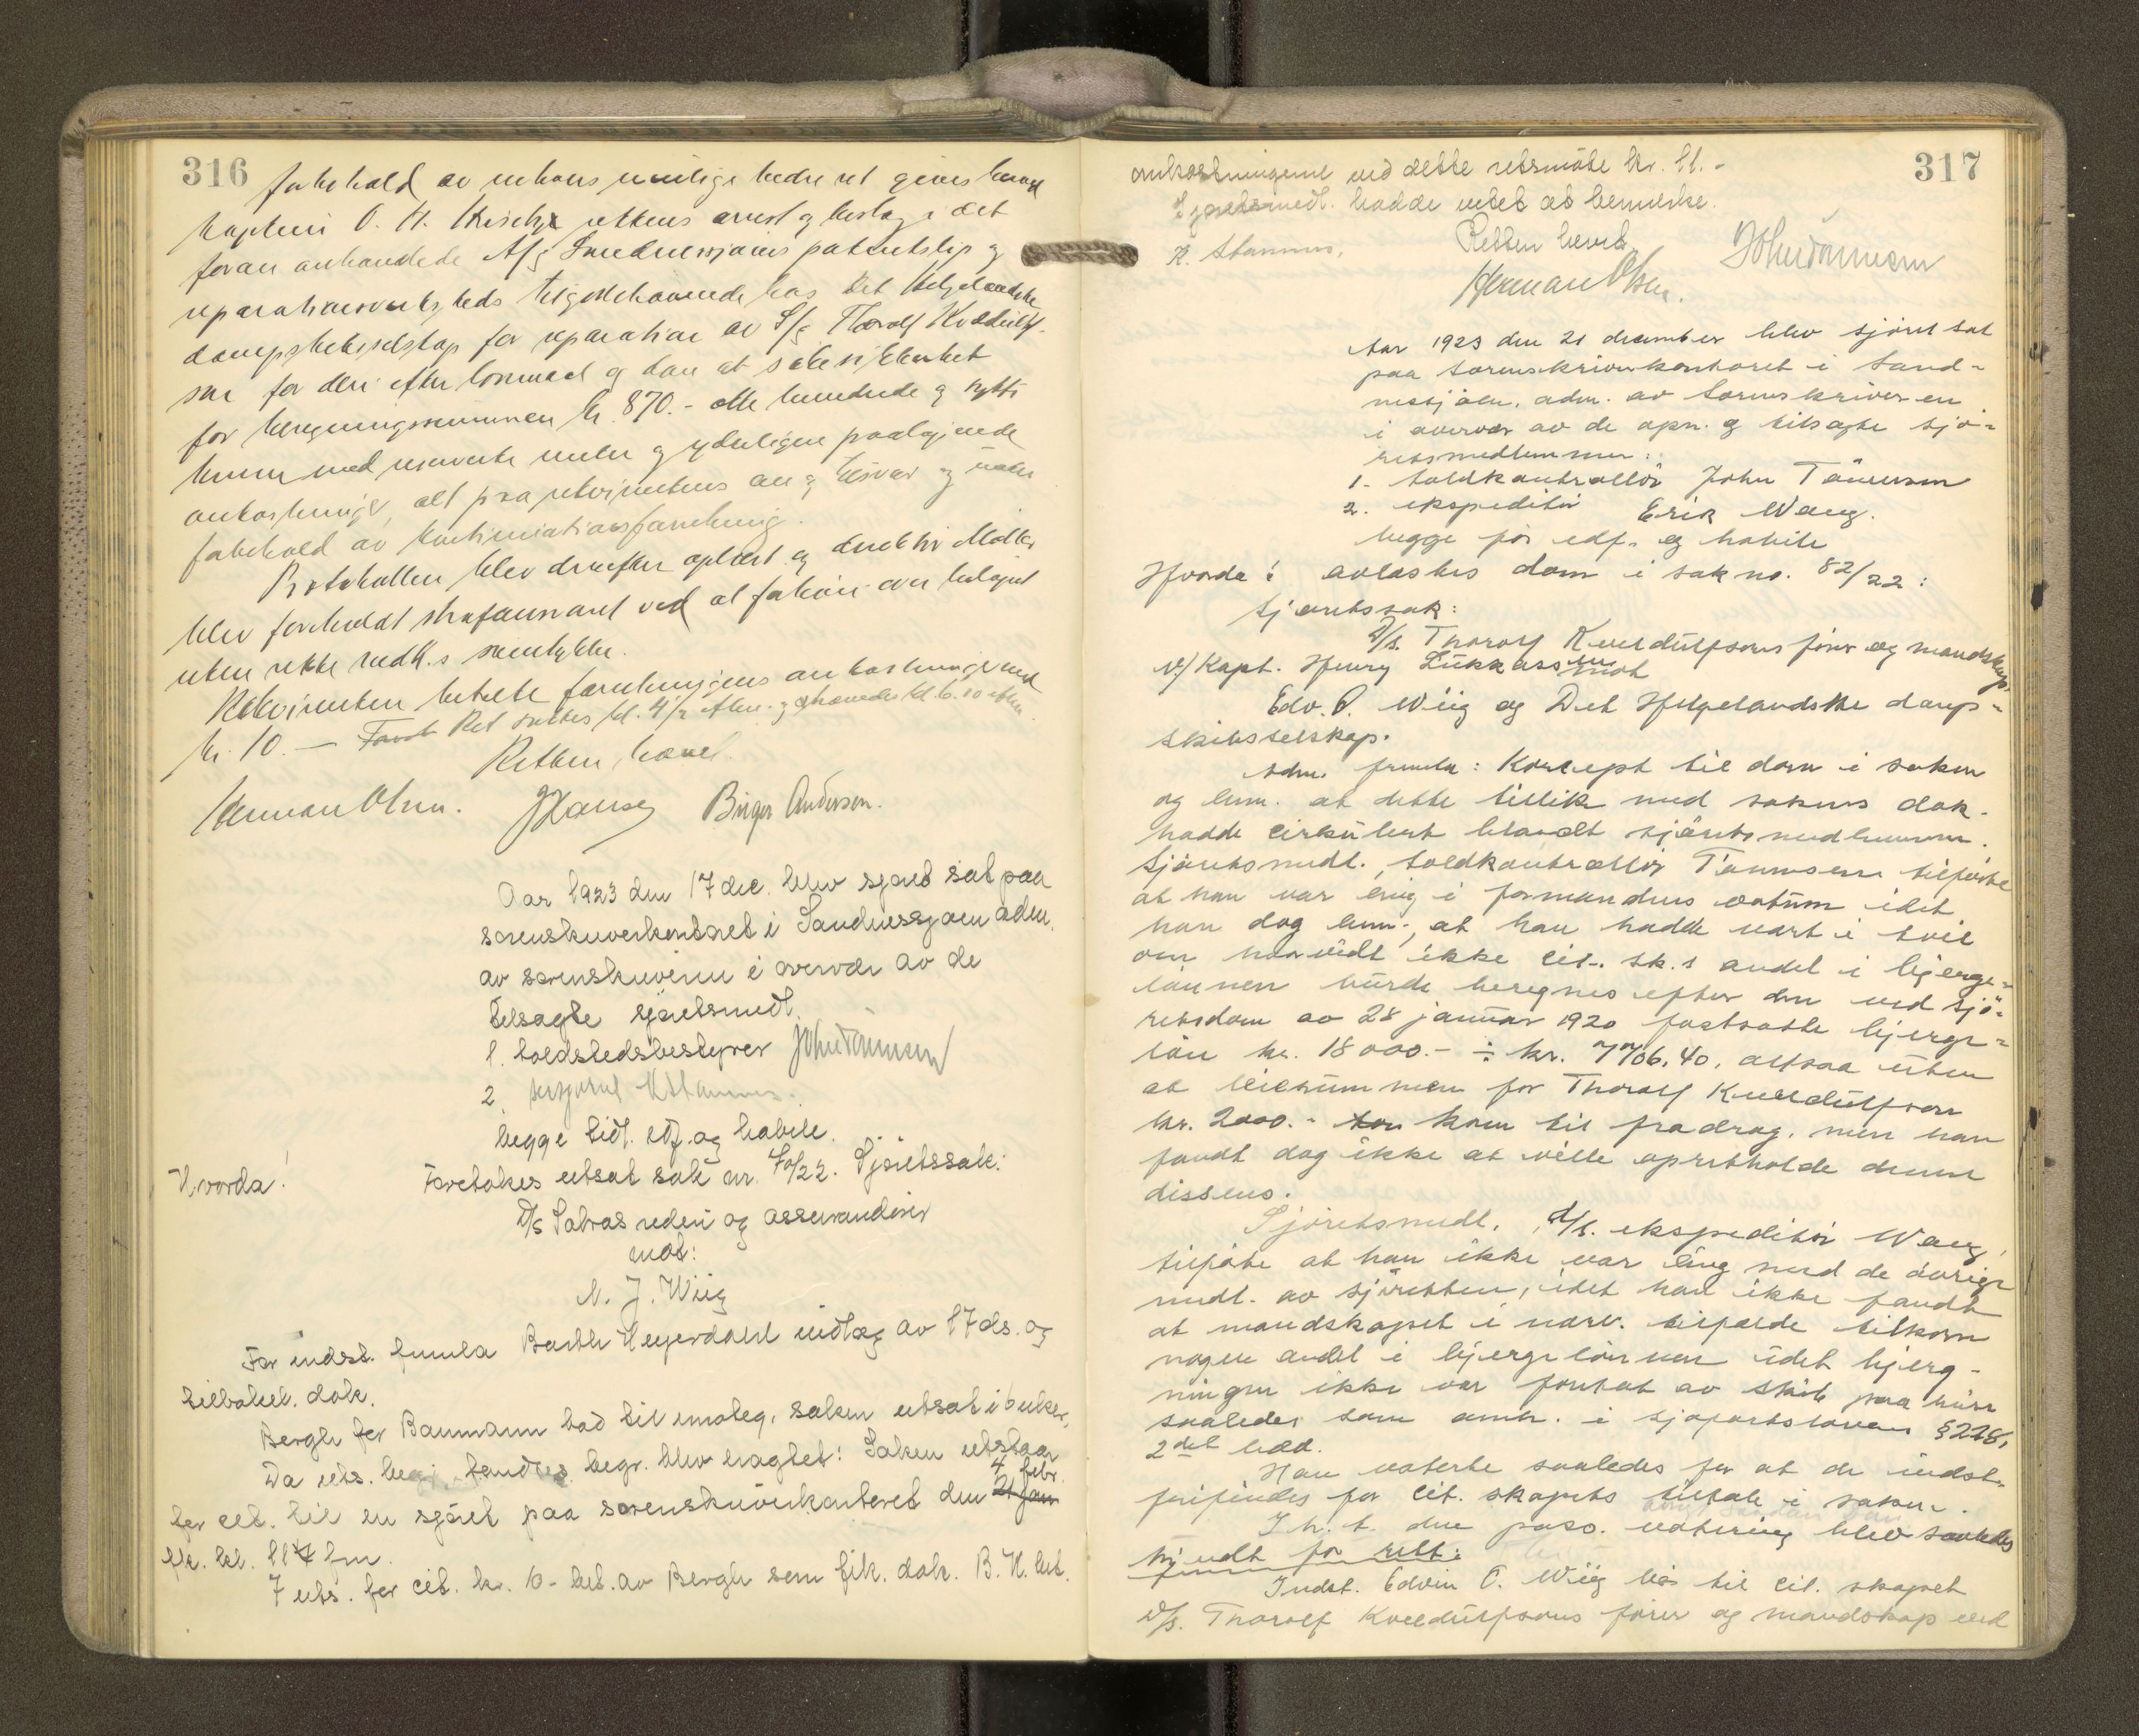 316
forbehold av enhvers mulige bedre ret gives herved
kaptein O. H. rettens arrest og beslag i det
foran anhændede A/S Sandnessjøens patentslip og
reparationsverksteds tilgodehavende hos Det Helgelandske
dampskibsselskap for reparation av D/S Thorolf Kveldulf-
søn for den efter lovmaal og dom at søke sikkerhet
for beregningssummen kr. 870.- otte hundrede og sytti
kroner med renter og ydterligere paaløpende
omkostninger, alt paa rekvirentens an- og tilsvar og under
forbehold av kontinuationsforretning.
Protokollen blev derefter oplæst og direktør Møller
blev foreholdt strafansvaret ved at forføie over beløpet
uten rekvirentens samtykke.
Rekvirenten betalte forretningens omkostninger med
kr. 10.— Ret sattes kl. 4½ efterm. og hævedes kl. 6.10 efterm.
Retten hævet.
Herman Olsen. J Hansen Birger Andersen.
Aar 1923 den 17 dec. blev sjøret sat paa
sorenskriverkontoret i Sandnessjøen adm.
av sorenskriveren i overvær av de
tilsagte sjøretsmedl.
1. toldstedsbestyrer John Tønnesen
2.
begge tidl. edf. og habile.
Hvorda! Foretokes utsat sak nr. 70/22. Sjøretssak:
D/S Satvas rederi og assurandører
mot:
N. J. Wiig
For indst. fremla Barth Heyerdahl indlæg av 17 ds. og
tilbakel. dok.
Bergh for Baumann bad til imøteg. saken utsat i 6 uker.
Da uts. begr. fandtes begr. blev eragtet: Saken utstaar
4 febr.
for cit. til en sjøret paa sorenskriverkontoret den 21 jan
f/k. kl. 11 fm.
I uts. for cit. kr. 10.- bet. av Bergh som fik dok. B. H. bet.
317
omkostningene ved dette retsmøte kr. 11.-
Sjøretsmedl. hadde intet at bemerke.
Retten hævet
K. John Tønnesen
Herman Olsen.
Aar 1923 den 21 december blev sjøret sat
paa sorenskriverkontoret i Sand-
nessjøen, adm. av sorenskriveren
i overvær av de opn. og tilsagte sjø-
retsmedlemmer:
1. toldkontrollør John Tönnesen
2. ekspeditør Erik Wang.
begge før edf. og habile
Hvorda: avlastes dom i sak no. 82/22:
Sjøretssak:
D/S. Thorolf Kveldulfsøns fører og mandskap
v/ Kapt. Henry Lükkassen
mot
Edv. O. Wiig og Det Helgelandske damp-
skibsselskap.
Adm. fremla: Koncept til dom i saken
og bem. at dette tillik med sakens dok.
hadde cirkulert blandt sjøretsmedlemmer.
Sjøretsmedl., toldkontrollør Tönnesen tilføiet
at han var enig i formandens votum idet
han dog bem., at han hadde vært i tvil
om hvorvidt ikke cit. sk.s andel i bjerge-
lønnen burde beregnes efter den ved sjø-
retsdom av 28 januar 1920 fastsatte bjerge-
løn kr. 18000.- ÷ kr. 7706,40, altsaa uten
at leiesummen for Thorolf Kveldulfsøn
kr. 2000.- kom til fradrag. men han
fandt dog ikke at ville opretholde denne
dissens.
Sjøretsmedl., d/s. ekspeditør Wang
tilføiet at han ikke var enig med de øvrige
medl. av sjøretten, idet han ikke fandt
at mandskapet i nærv. tilfælde tilkom
nogen andel i bjergelønnen idet bjerg-
ningen ikke var foretat av skib paa hver
saaledes som omh. i sjøfartslovens §228,
2det ledd.
Han voterte saaledes for at de indst.
frifindes for cit. skapets tiltale i saken.
I h. t. den pass. votering blev saaledes
kjendt for ret:
Indst. Edvin O. Wiig bør til cit. skapet
D/S. Thorolf Kveldulfsøns fører og mandskap ved